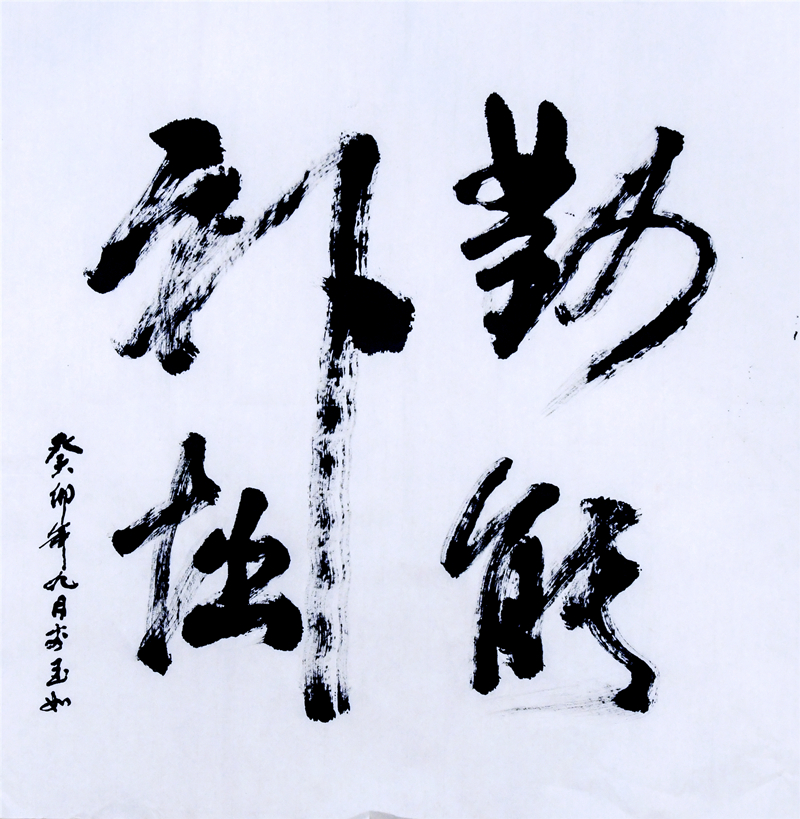 勤能
补拙
癸卯年九月玉如